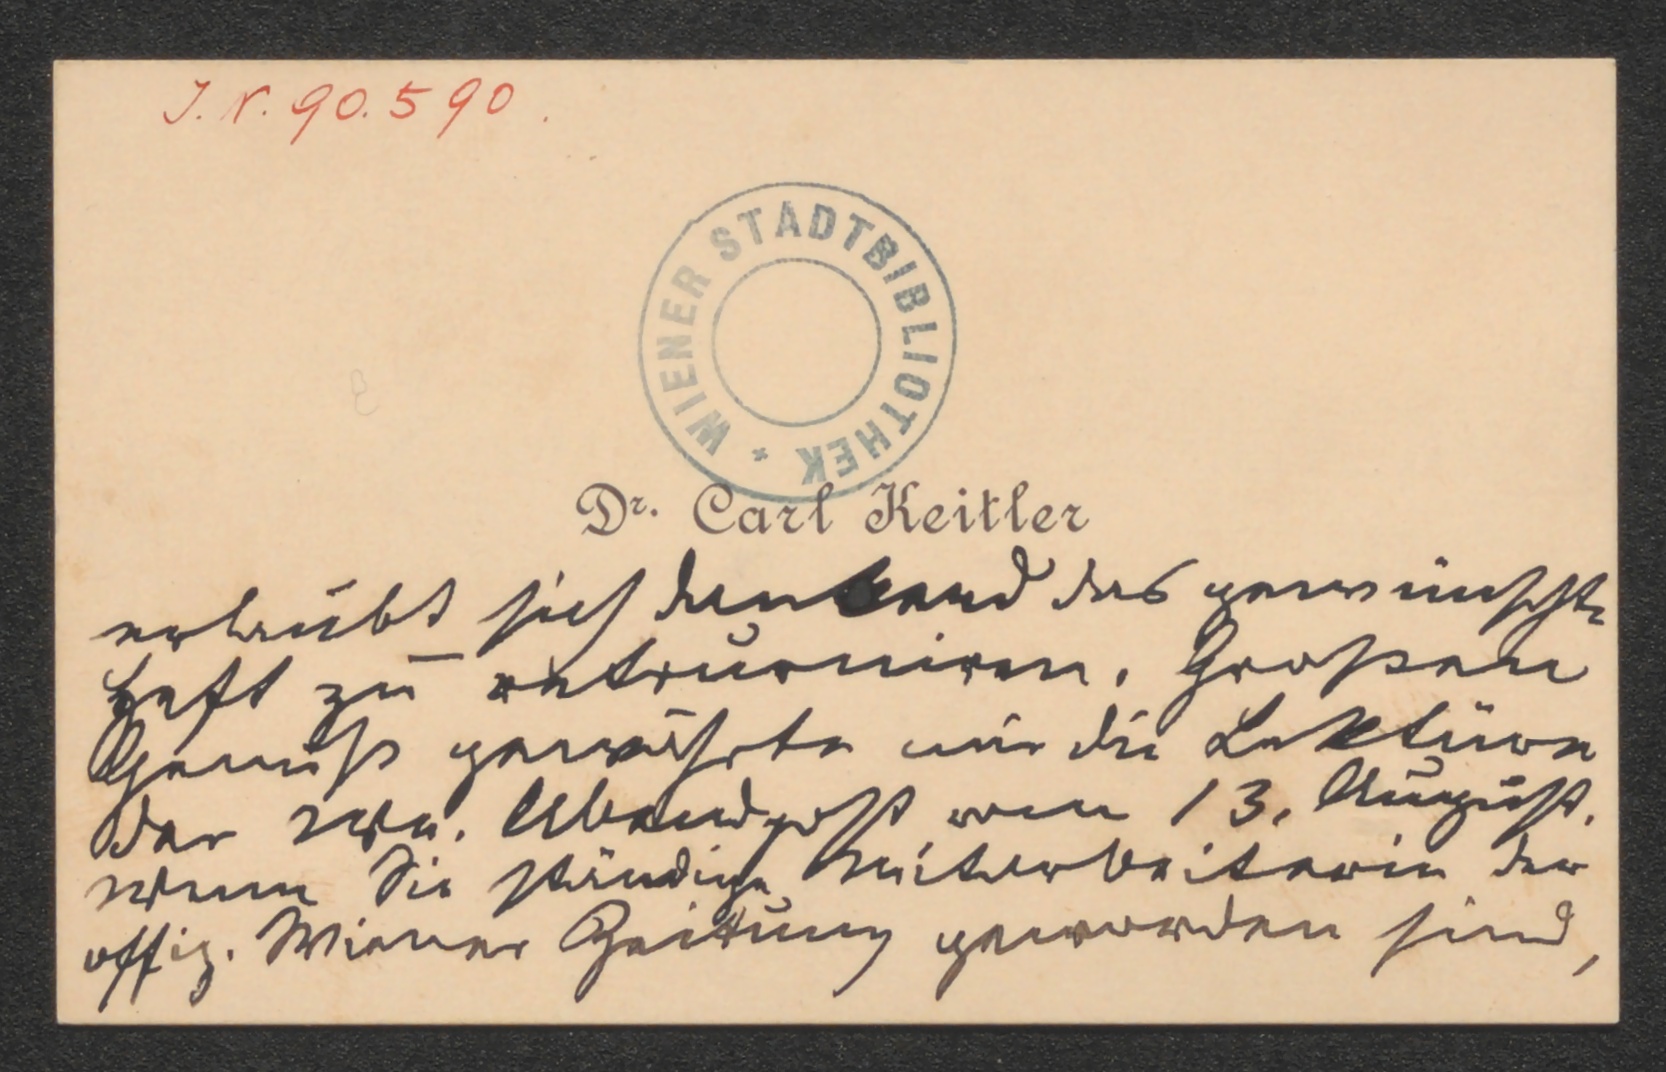 J.N. 90.590.
WIENER STADTBIBLIOTHEK *
Dr. Carl Keitler
erlaubt sich dankend das gewünschte
Heft zu retourniren. Großen
Genuß gewährte mir die Lektüre
der Abendpost vom 13. August.
Wenn Sie ständige Mitarbeiterin der
offiz. Wiener Zeitung geworden sind,